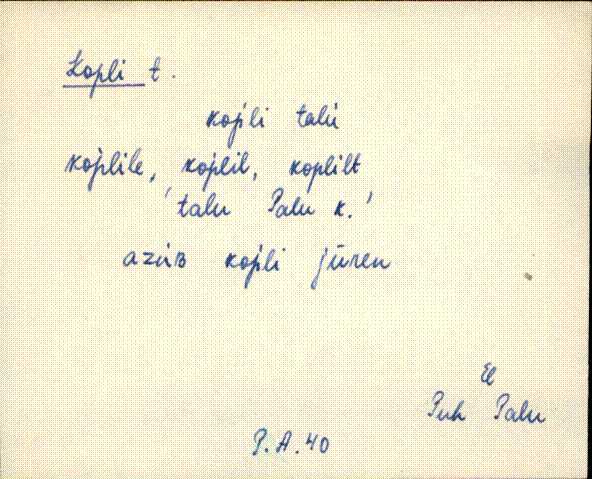 Kopli t.
kop̀li talu
kop̀lile, kop̀lil, koplilt
'talu Palu k.'
azuʙ kop̀li jūren
El
Puh Palu
P.A.40